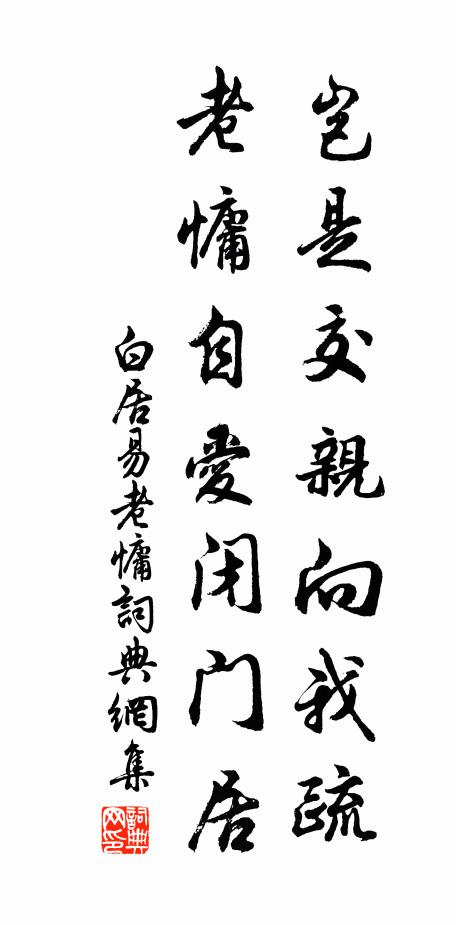 豈是交親向我疏
老慵自愛閉門居
白居易老慵詞典網集
詞典网印